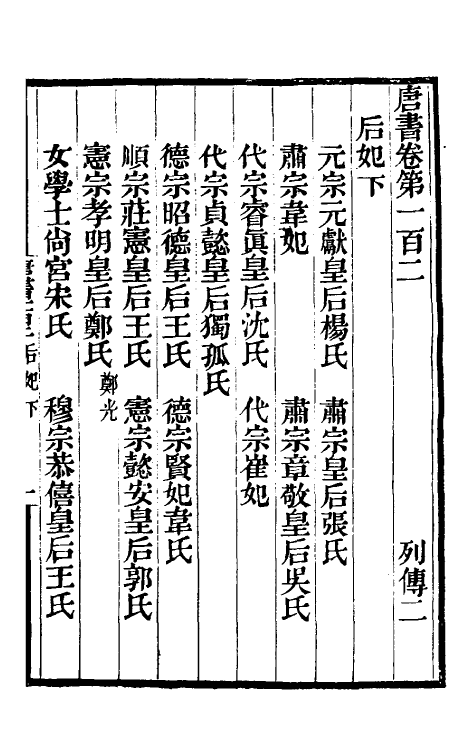 唐書卷第一百二　列傳二
后妃下
元宗元獻皇后楊氏　肅宗皇后張氏
肅宗韋妃　肅宗章敬皇后吳氏
代宗睿眞皇后沈氏　代宗崔妃
代宗貞懿皇后獨孤氏
德宗昭德皇后王氏　德宗賢妃韋氏
順宗莊憲皇后王氏　憲宗懿安皇后郭氏
憲宗孝明皇后鄭氏 鄭光
女學士尙宮宋氏　穆宗恭僖皇后王氏
后妃下　一